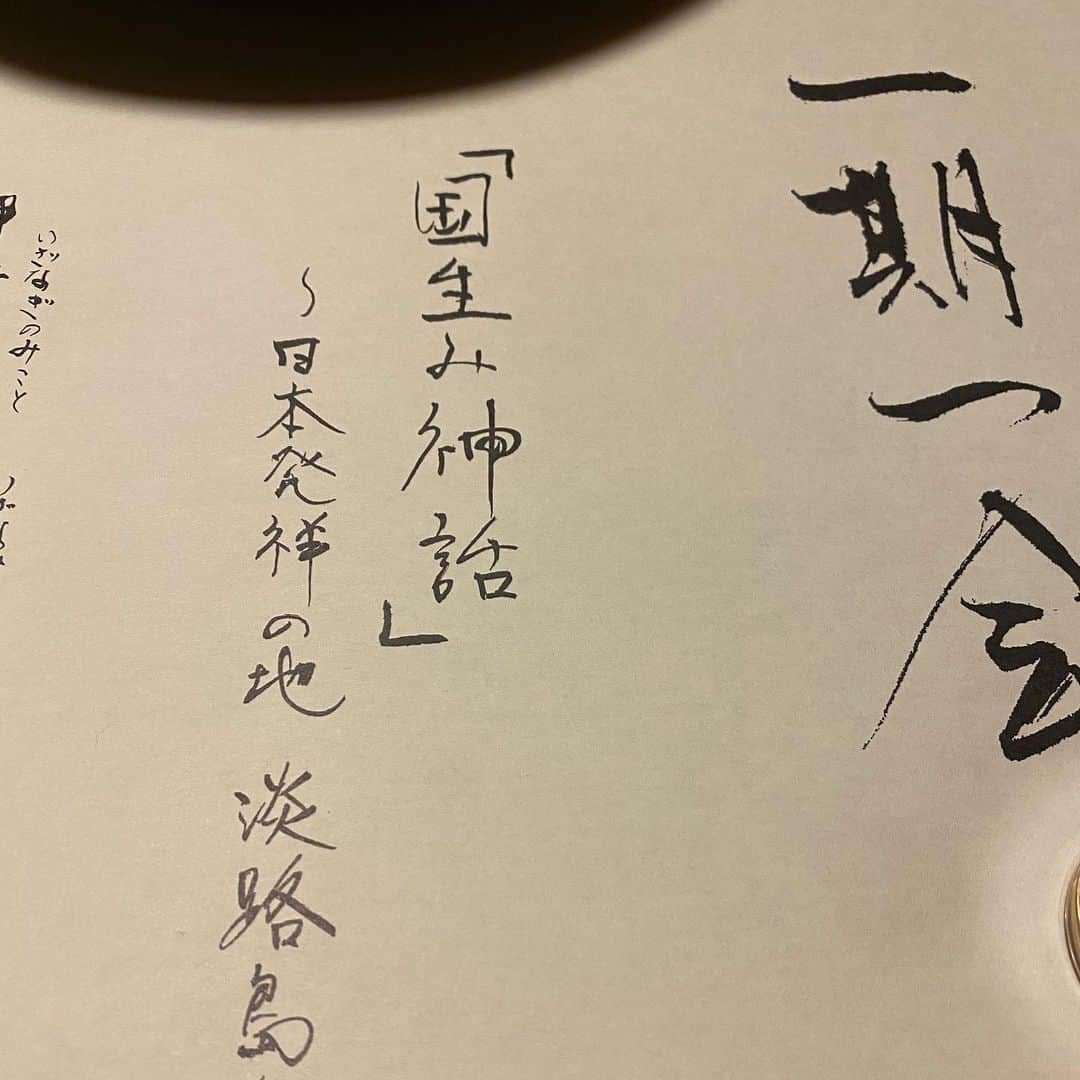 一期一会
「国生み神話」
～日本発祥の地 淡路島
いざなぎのみこと